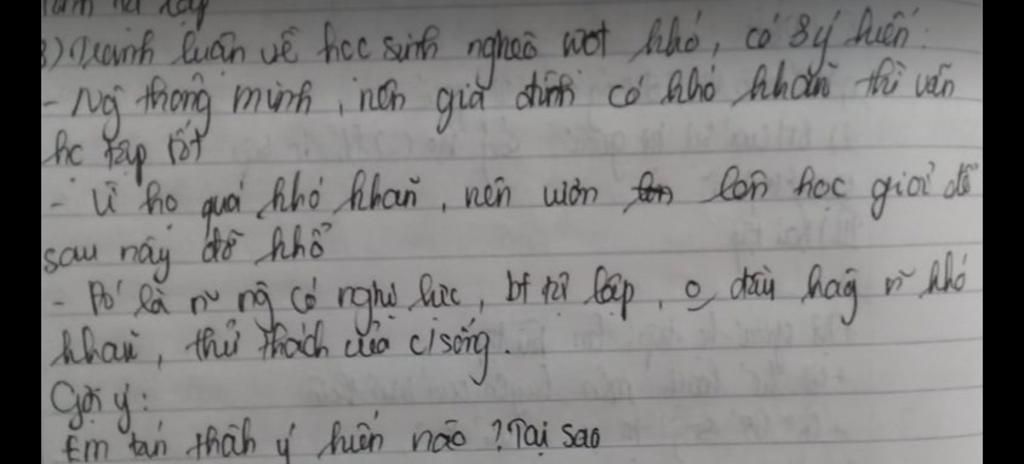 3) Tranh luận về học sinh nghèo vượt khó, có 3 ý kiến:
- Ng thông minh, nên gia đình có khó khăn thì vẫn
học tập tốt
- Vì họ quá khó khăn, nên luôn học giỏi để
sau này đỡ khổ
- Đó là n~ ng có nghị lực, bt tự lập, o đầu hàng n~ khó
khăn, thử thách của c/sống.
Gợi ý:
Em tán thành ý kiến nào? Tại sao